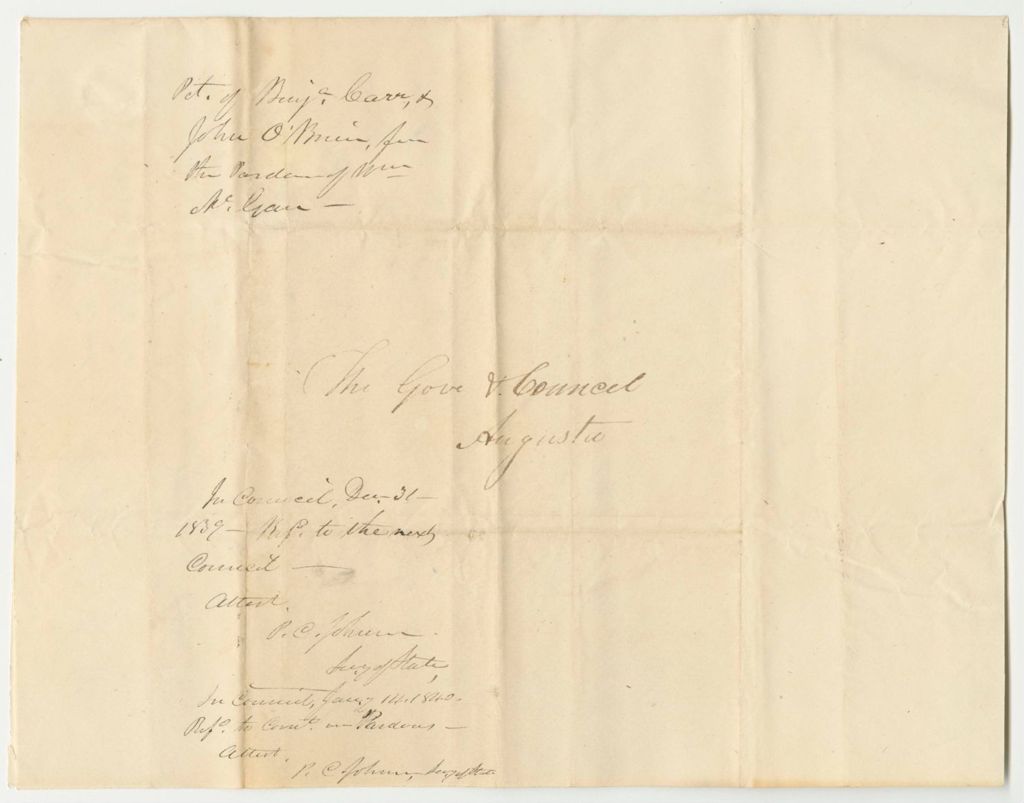 Pet. of Benj.a Carr, &
John O'Brien, for
the Pardon of Wm
Mc.
The Gove & Council
Augusta
In Council, Dec. 31
1839 – Ref. to the next
Council –
Attest.
P. C. Johnson
Secy of State,
In Council, Jany 14. 1840.
Refd. to Comtt. on Pardons –
Attest.
P. C. Johnson, Secy of State